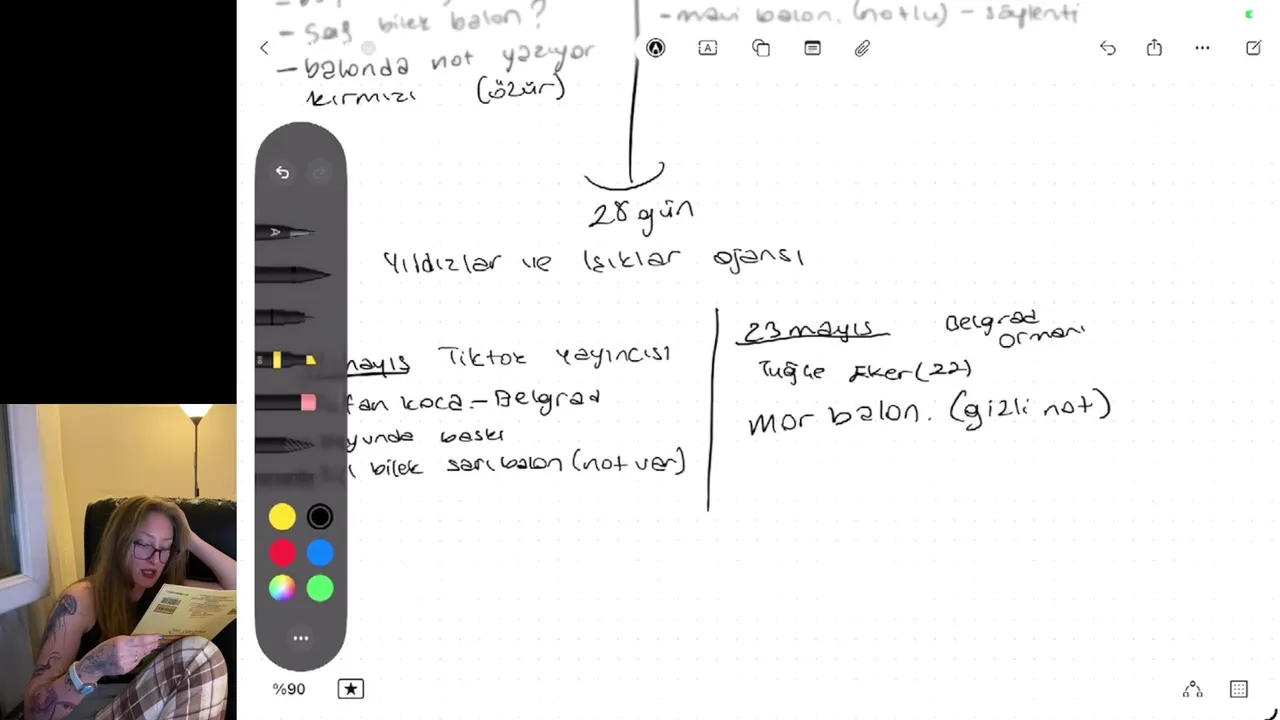 - Sağ bilek balon?
- balonda not yazıyor
kırmızı (özür)
- mavi balon. (notlu) - söylenti
28 gün
Yıldızlar ve Işıklar ajansı
mayıs Tiktok yayıncısı
fan koca - Belgrad
yunda baskı
bilek sarı balon (not var)
23 mayıs Belgrad
Ormanı
Tuğçe Eker (22)
mor balon. (gizli not)
%90